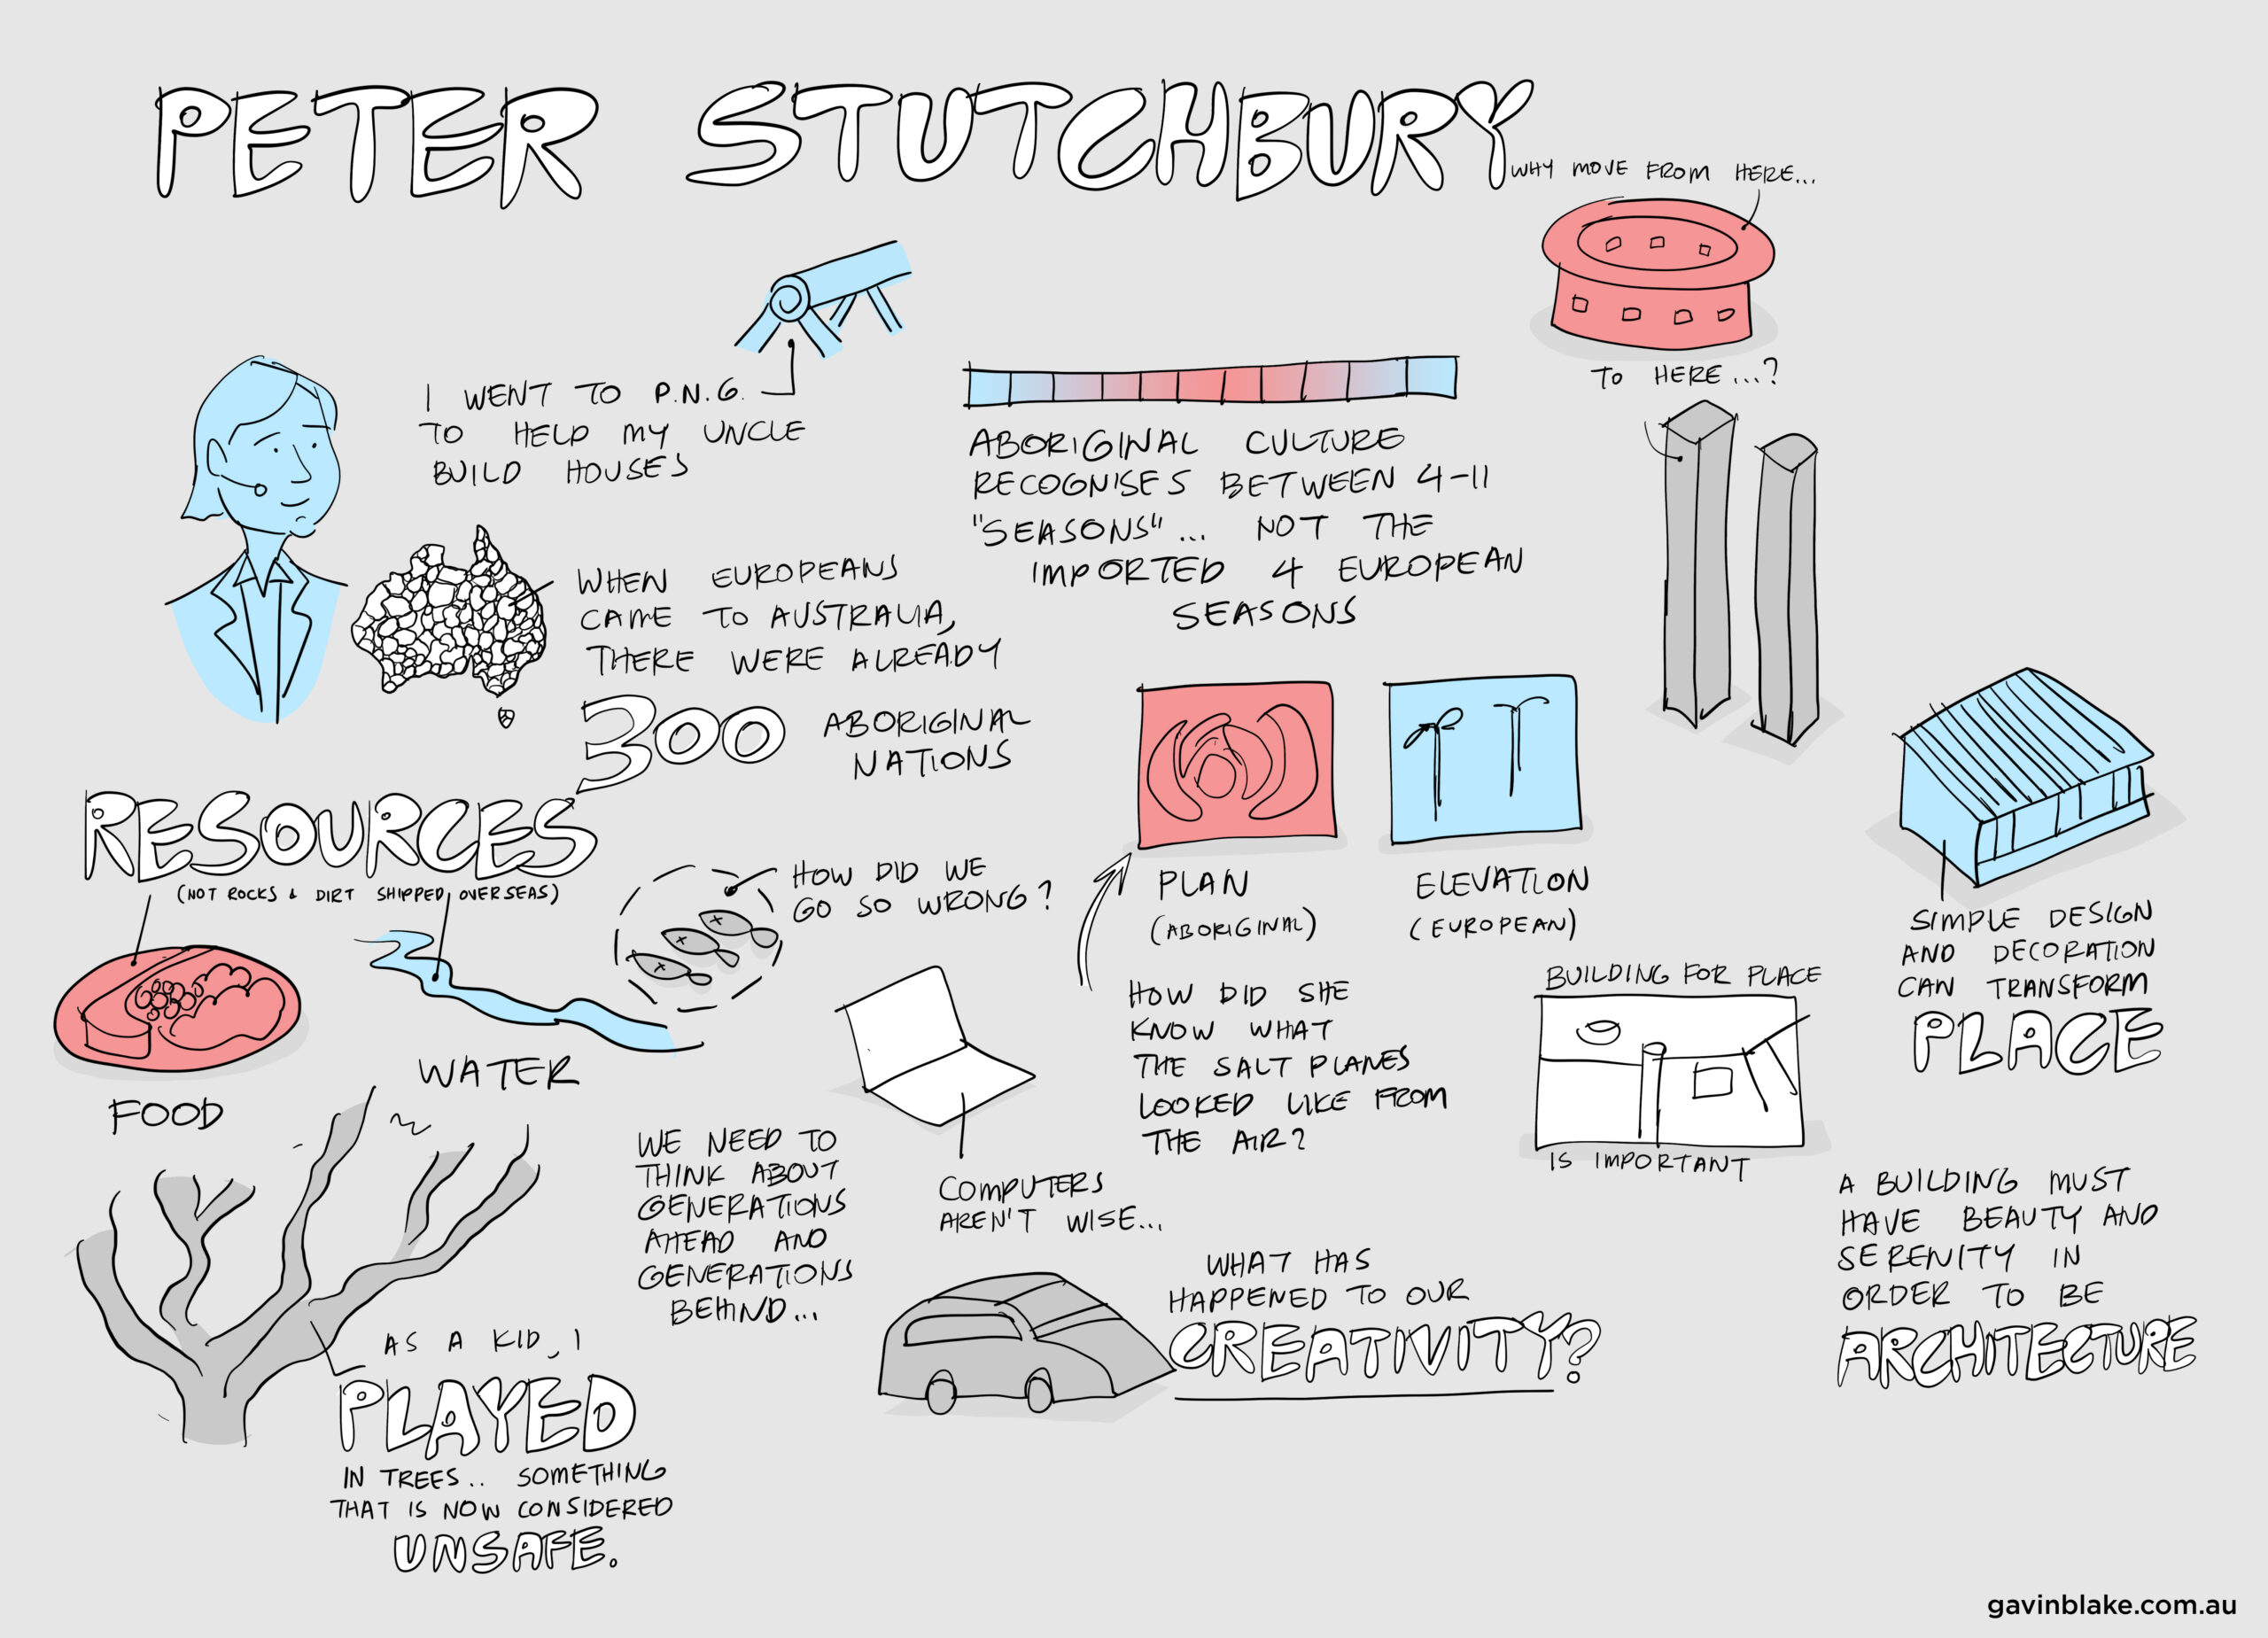 PETER STUTCHBURY
WHY MOVE FROM HERE...
TO HERE...?
I WENT TO P.N.G.
TO HELP MY UNCLE
BUILD HOUSES
ABORIGINAL CULTURE
RECOGNISES BETWEEN 4-11
"SEASONS"... NOT THE
IMPORTED 4 EUROPEAN
SEASONS
WHEN EUROPEANS
CAME TO AUSTRALIA,
THERE WERE ALREADY
300 ABORIGINAL
NATIONS
RESOURCES
(NOT ROCKS & DIRT SHIPPED OVERSEAS)
FOOD
WATER
HOW DID WE
GO SO WRONG?
PLAN
(ABORIGINAL)
ELEVATION
(EUROPEAN)
HOW DID SHE
KNOW WHAT
THE SALT PLANES
LOOKED LIKE FROM
THE AIR?
SIMPLE DESIGN
AND DECORATION
CAN TRANSFORM
PLACE
BUILDING FOR PLACE
IS IMPORTANT
WE NEED TO
THINK ABOUT
GENERATIONS
AHEAD AND
GENERATIONS
BEHIND...
COMPUTERS
AREN'T WISE...
WHAT HAS
HAPPENED TO OUR
CREATIVITY?
A BUILDING MUST
HAVE BEAUTY AND
SERENITY IN
ORDER TO BE
ARCHITECTURE
AS A KID, I
PLAYED
IN TREES.. SOMETHING
THAT IS NOW CONSIDERED
UNSAFE.
gavinblake.com.au